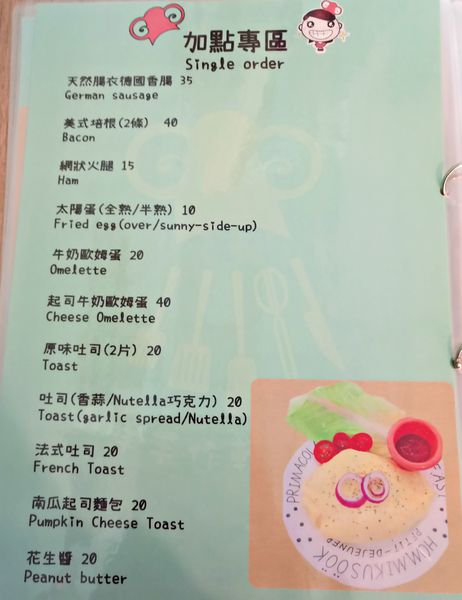 加點專區
Single order
天然腸衣德國香腸 35
German sausage
美式培根(2條) 40
Bacon
網狀火腿 15
Ham
太陽蛋(全熟/半熟) 10
Fried egg(over/sunny-side-up)
牛奶歐姆蛋 20
Omelette
起司牛奶歐姆蛋 40
Cheese Omelette
原味吐司(2片) 20
Toast
吐司(香蒜/Nutella巧克力) 20
Toast(garlic spread/Nutella)
法式吐司 20
French Toast
南瓜起司麵包 20
Pumpkin Cheese Toast
花生醬 20
Peanut butter
HOMMIKUSÖÖK
PETIT-DEJEUNER